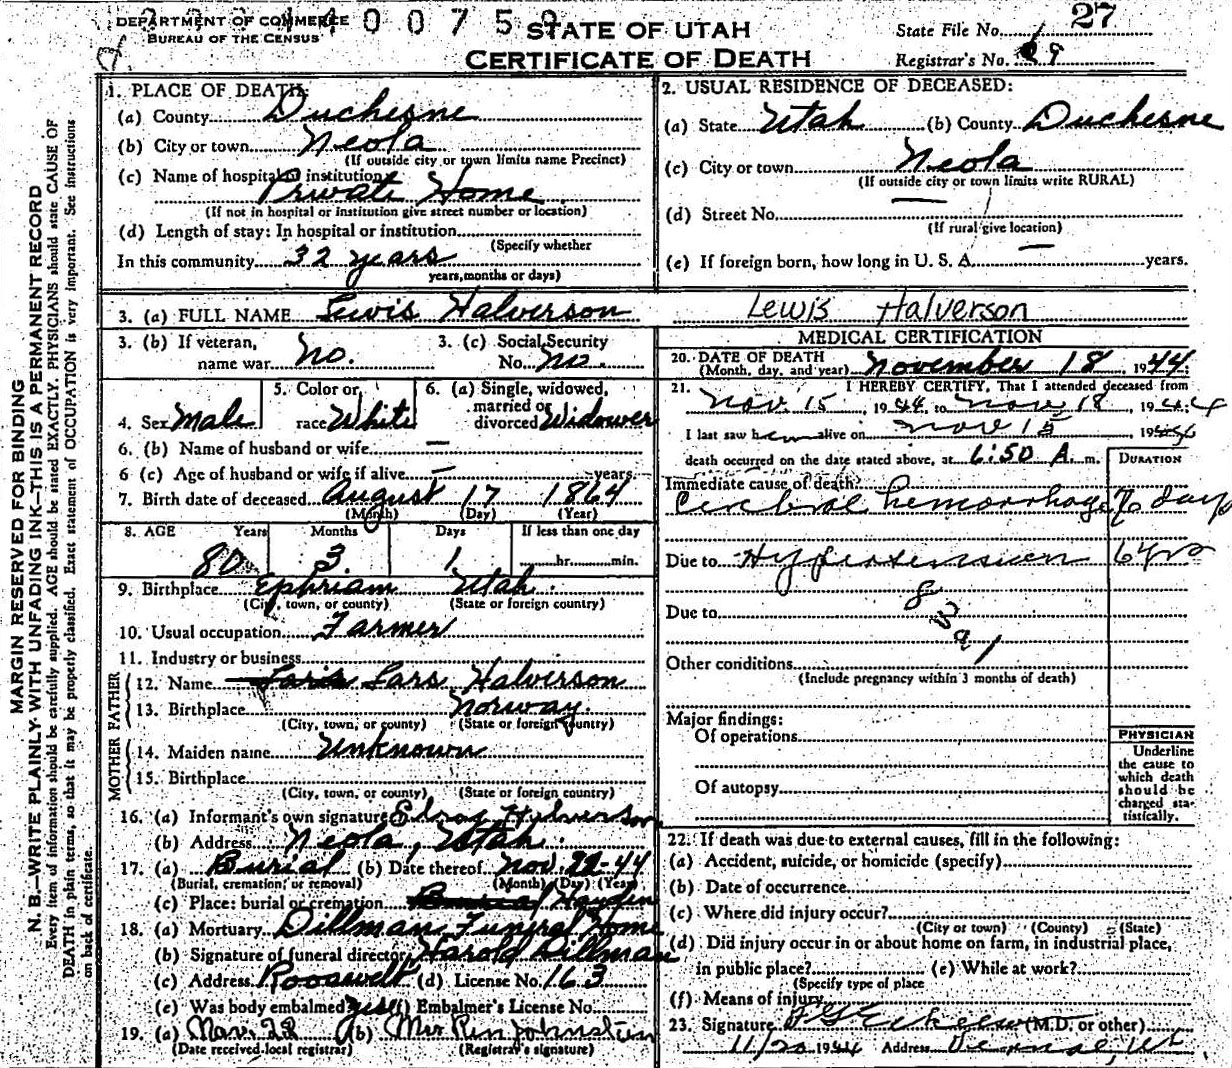 DEPARTMENT OF COMMERCE
BUREAU OF THE CENSUS
STATE OF UTAH
CERTIFICATE OF DEATH
State File No. 27
Registrar's No. 89
MARGIN RESERVED FOR BINDING
N. B.—WRITE PLAINLY WITH UNFADING INK—THIS IS A PERMANENT RECORD
Every item of information should be carefully supplied. AGE should be stated EXACTLY. PHYSICIANS should state CAUSE OF
DEATH in plain terms, so that it may be properly classified. Exact statement of OCCUPATION is very important. See instructions
on back of certificate.
1. PLACE OF DEATH:
(a) County Duchesne
(b) City or town Neola
(If outside city or town limits name Precinct)
(c) Name of hospital or institution
Private Home
(If not in hospital or institution give street number or location)
(d) Length of stay: In hospital or institution
(Specify whether
In this community 32 years
years, months or days)
2. USUAL RESIDENCE OF DECEASED:
(a) State Utah (b) County Duchesne
(c) City or town Neola
(If outside city or town limits write RURAL)
(d) Street No.
(If rural give location)
(e) If foreign born, how long in U. S. A. — years.
3. (a) FULL NAME Lewis Halverson Lewis Halverson
3. (b) If veteran, name war No. 3. (c) Social Security No. no.
4. Sex Male
5. Color or race White
6. (a) Single, widowed, married or divorced Widower
6. (b) Name of husband or wife —
6 (c) Age of husband or wife if alive — years.
7. Birth date of deceased August 17 1864
(Month) (Day) (Year)
8. AGE Years Months Days If less than one day
80 3 1 hr. min.
9. Birthplace Ephriam Utah
(City, town, or county) (State or foreign country)
10. Usual occupation Farmer
11. Industry or business
FATHER
12. Name Lars Halverson
13. Birthplace Norway
(City, town, or county) (State or foreign country)
MOTHER
14. Maiden name Unknown
15. Birthplace
(City, town, or county) (State or foreign country)
16. (a) Informant's own signature Elroy Halverson
(b) Address Neola, Utah.
17. (a) Burial (b) Date thereof Nov. 22-44
(Burial, cremation, or removal) (Month) (Day) (Year)
(c) Place: burial or cremation Hayden
18. (a) Mortuary Dillman Funeral Home
(b) Signature of funeral director Harold Dillman
(c) Address Roosevelt (d) License No. 163
(e) Was body embalmed yes (f) Embalmer's License No.
19. (a) Nov. 22 (b) Johnston
(Date received local registrar) (Registrar's signature)
MEDICAL CERTIFICATION
20. DATE OF DEATH
(Month, day, and year) November 18, 1944
21. I HEREBY CERTIFY, That I attended deceased from
Nov. 15, 1944, to Nov. 18, 1944
I last saw him alive on Nov 15, 1944
death occurred on the date stated above, at 6:50 A. m.
DURATION
Immediate cause of death?
Cerebral hemorrhage days
Due to Hypertension 6 yrs
Due to
Other conditions
(Include pregnancy within 3 months of death)
Major findings:
Of operations
Of autopsy
PHYSICIAN
Underline
the cause to
which death
should be
charged sta-
tistically.
22. If death was due to external causes, fill in the following:
(a) Accident, suicide, or homicide (specify)
(b) Date of occurrence
(c) Where did injury occur?
(City or town) (County) (State)
(d) Did injury occur in or about home on farm, in industrial place,
in public place? (e) While at work?
(Specify type of place
(f) Means of injury
23. Signature (M.D. or other)
11/20 1944 Address Vernal, Ut